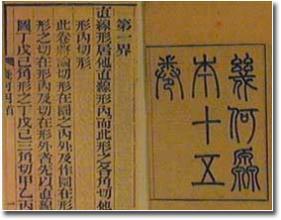 幾何原
本十五
卷
第一界
直線形居他直線形內而此形之各角切他
形內切形
此卷將論切形在圜之內外及作圜在形
形之切在形內及切在形外者先以直線
圖丁戊己角形之丁戊己三角切甲乙